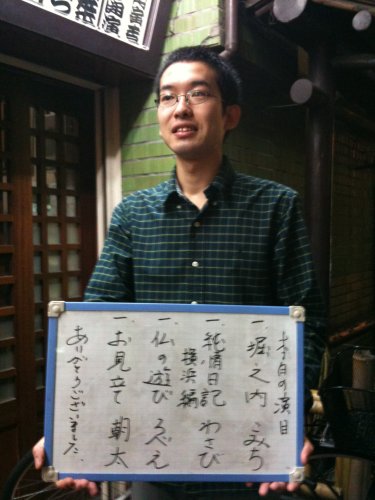 本日の演目
一、堀之内 こみち
一、純情日記 わさび
横浜編
一、仏の遊び ろべえ
一、お見立て 朝太
ありがとうございました。